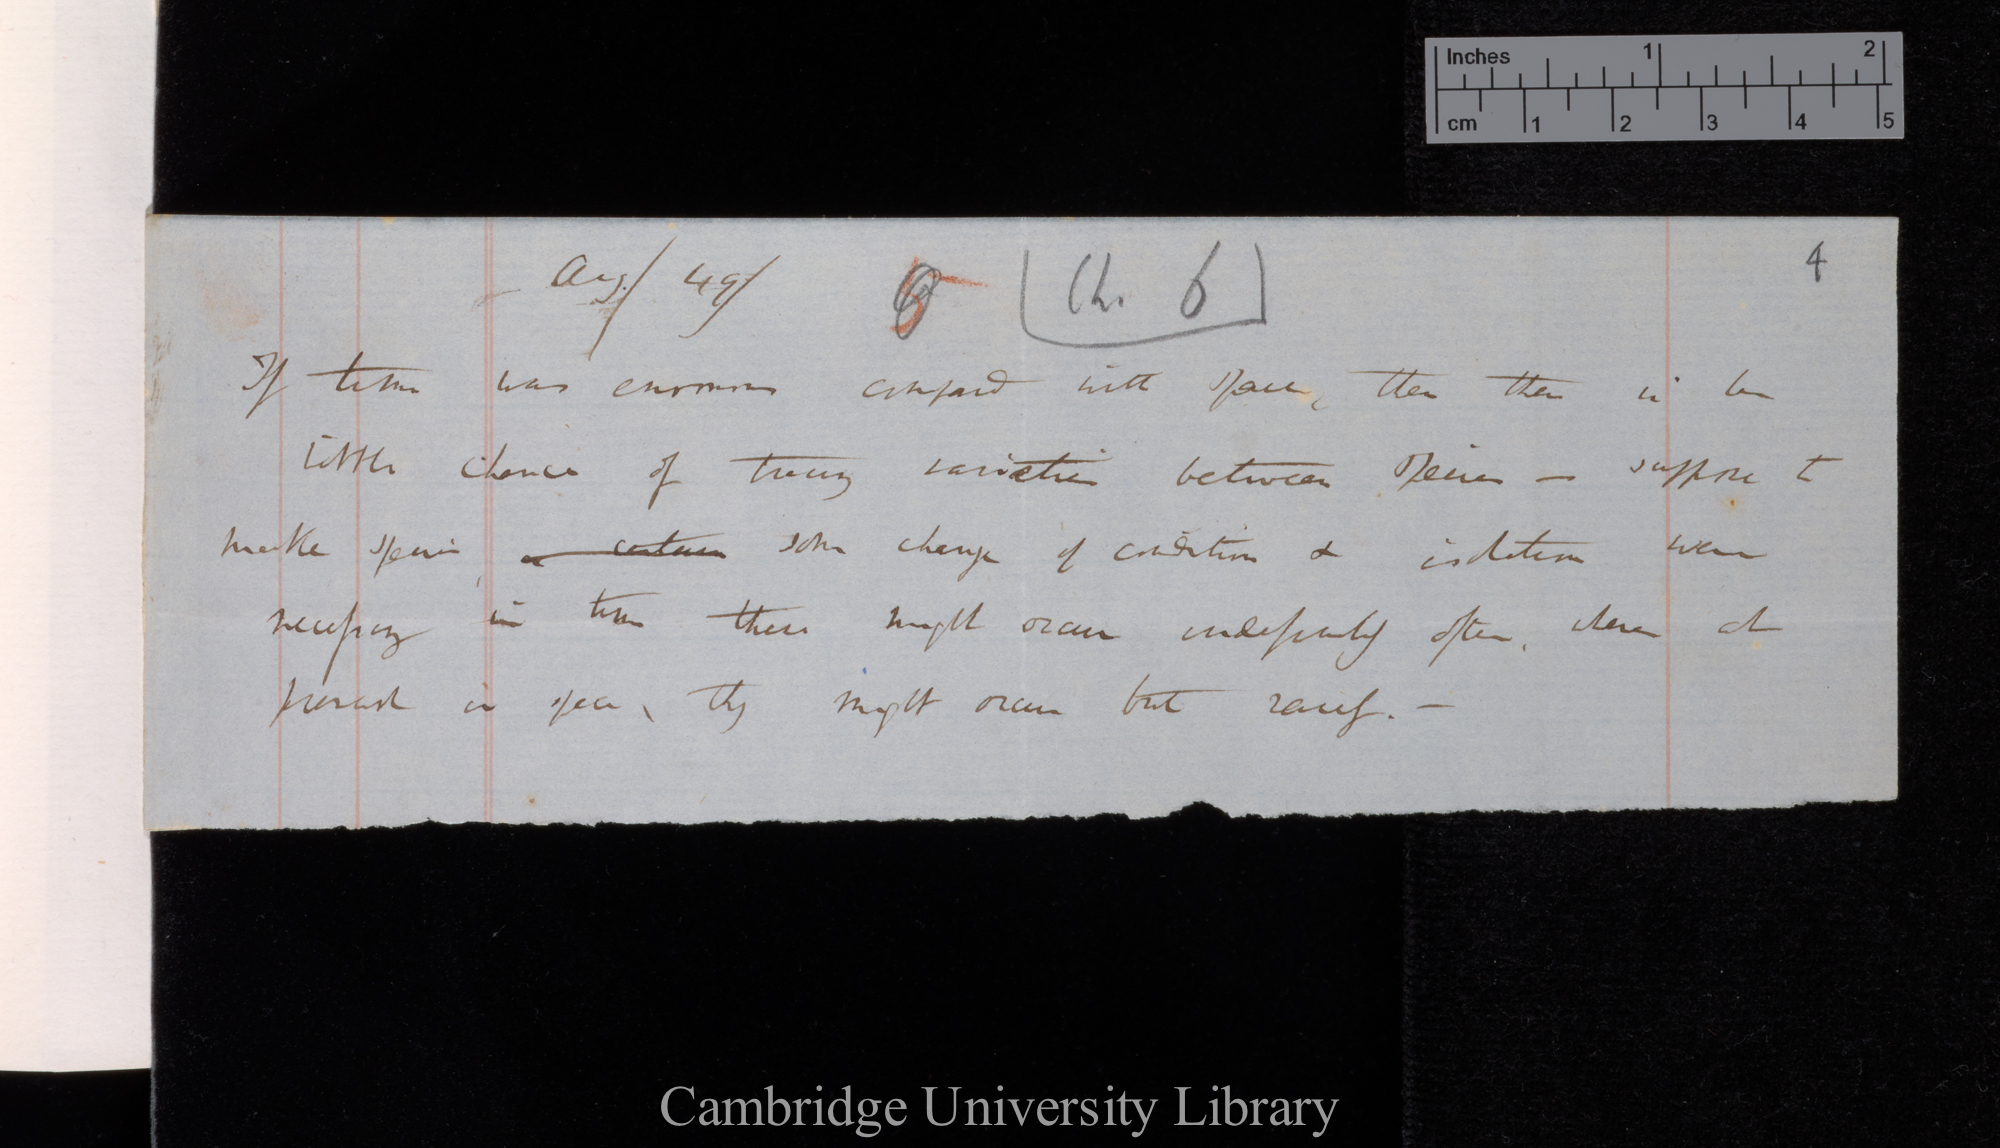 Inches 1 2
cm 1 2 3 4 5
Aug/ 49/ 6 [Ch. 6] 4
If time was enormous compared with space, then there is
little chance of tracing varieties between species — suppose to
make species, a certain some change of condition & isolation were
necessary in time these might occur indefinitely often, when at
present in space, they might occur but rarely. —
Cambridge University Library